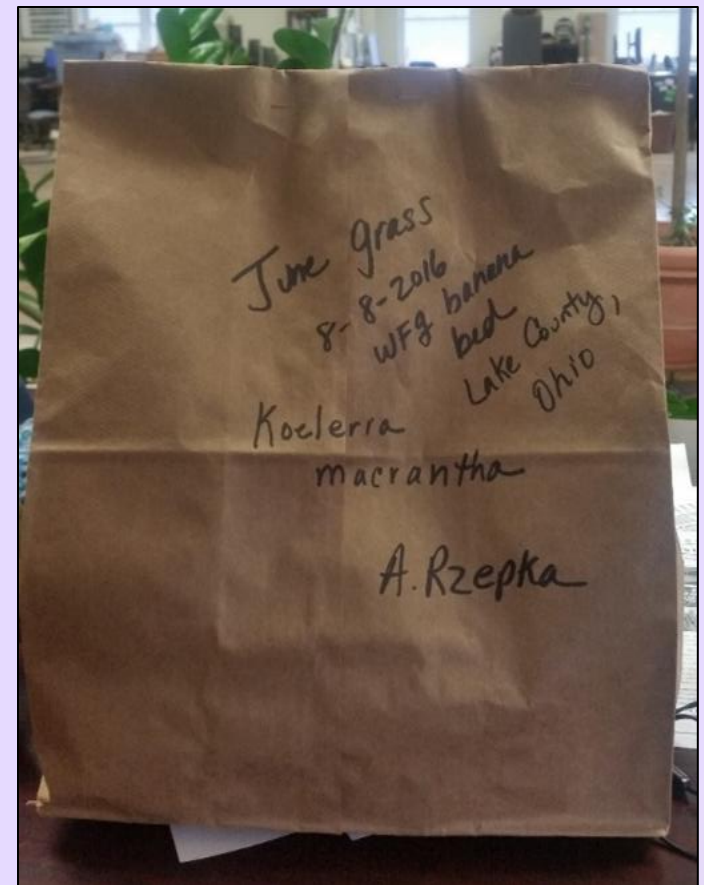 June grass
8-8-2016
WFG banana
bed
Lake County,
Ohio
Koelerra
macrantha
A. Rzepka